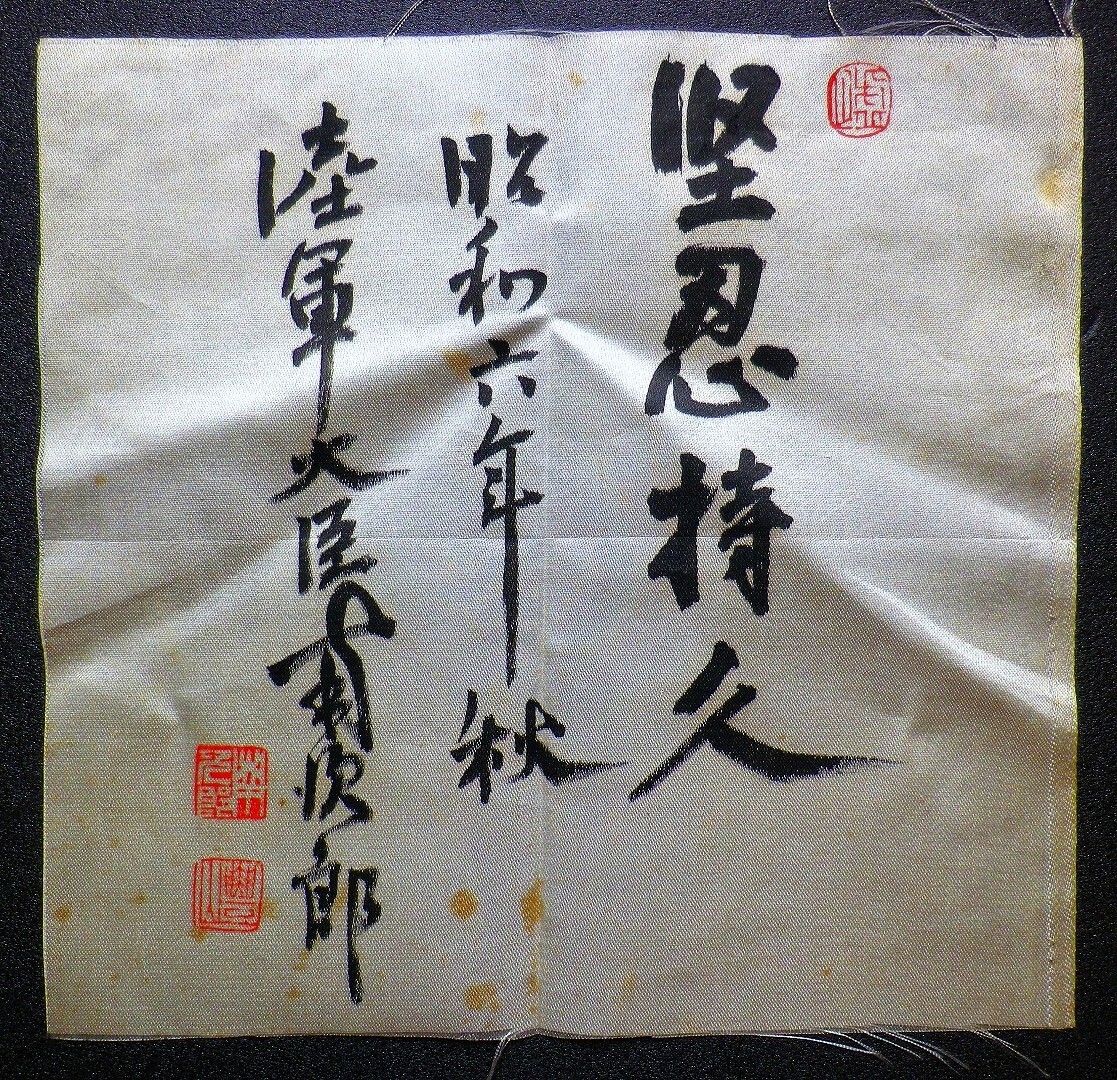 堅忍持久
昭和六年秋
陸軍大臣南次郎